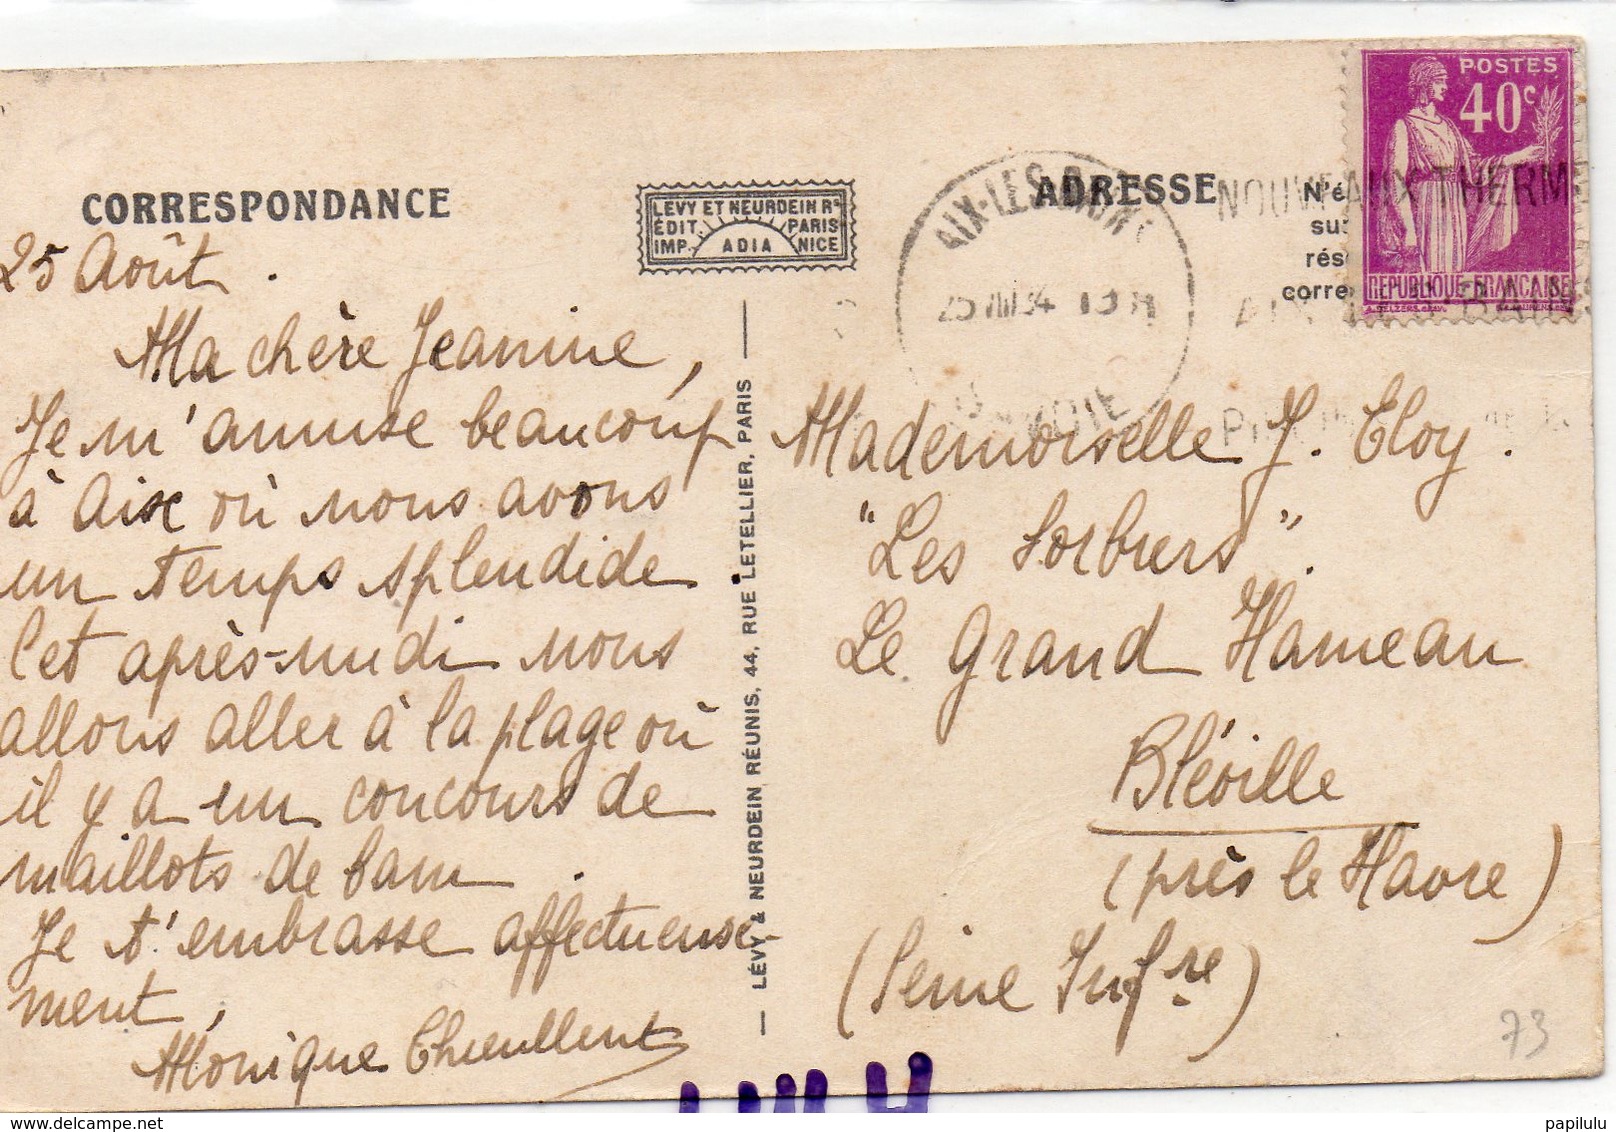 CORRESPONDANCE
25 Août.
Ma chère Jeanine,
Je m'amuse beaucoup
à Aix où nous avons
un temps splendide
Cet après-midi nous
allons aller à la plage où
il y a un concours de
maillots de bain.
Je t'embrasse affectueuse-
ment,
Monique
LEVY ET NEURDEIN Rs
ÉDIT. PARIS
IMP. ADIA NICE
— LÉVY & NEURDEIN RÉUNIS, 44, RUE LETELLIER, PARIS —
ADRESSE
N'é
su
rés
corre
POSTES
40c
REPUBLIQUE FRANÇAISE
AIX-LES-BAINS
25 VIII 34
SAVOIE
NOUVEAUX THERM
Mademoiselle J. Eloy.
"Les Sorbiers".
Le Grand Hameau
Bléville
(près le Havre)
(Seine Infre)
73
www.delcampe.net
papilulu